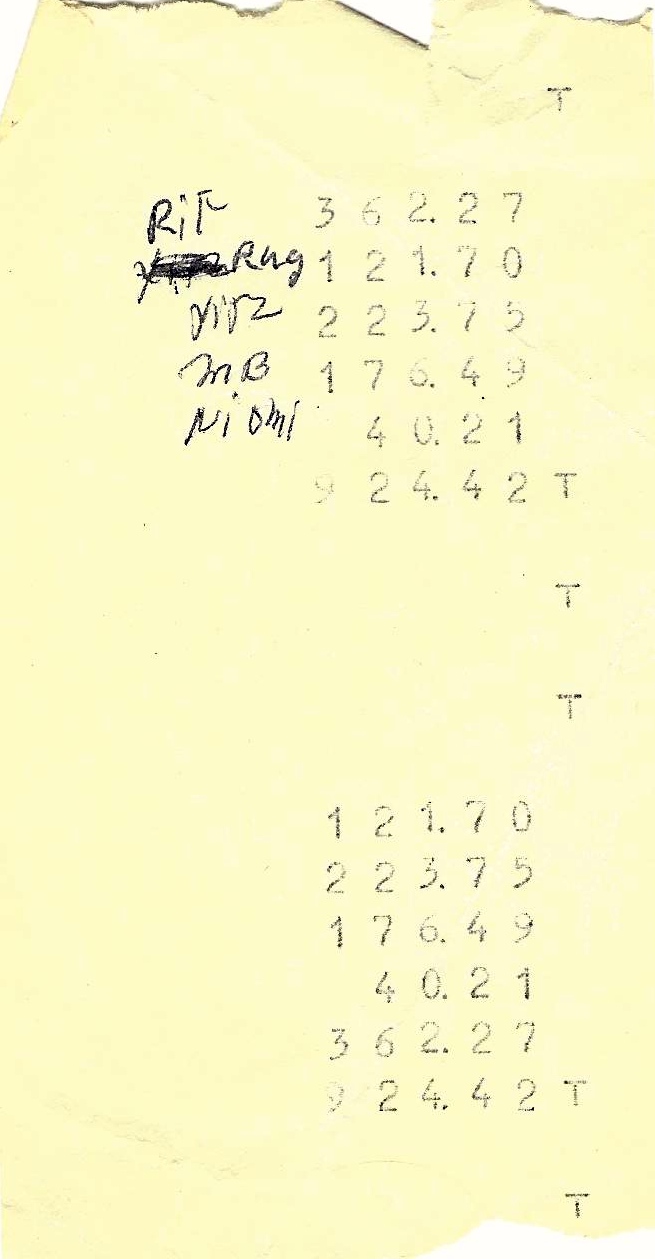 T
RiT 3 6 2. 2 7
Rug 1 2 1. 7 0
2 2 3. 7 5
MB 1 7 6. 4 9
Niomi 4 0. 2 1
9 2 4. 4 2 T
T
T
1 2 1. 7 0
2 2 3. 7 5
1 7 6. 4 9
4 0. 2 1
3 6 2. 2 7
9 2 4. 4 2 T
T